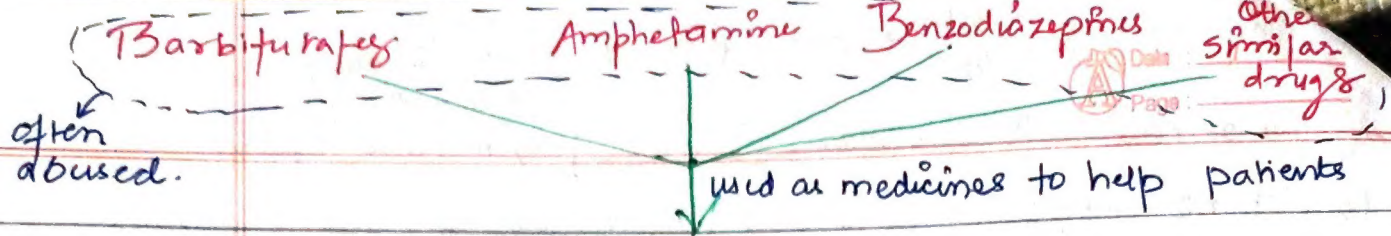 Barbiturates Amphetamine Benzodiazepines Other
similar
drugs
Date :
Page :
often
abused.
used as medicines to help patients